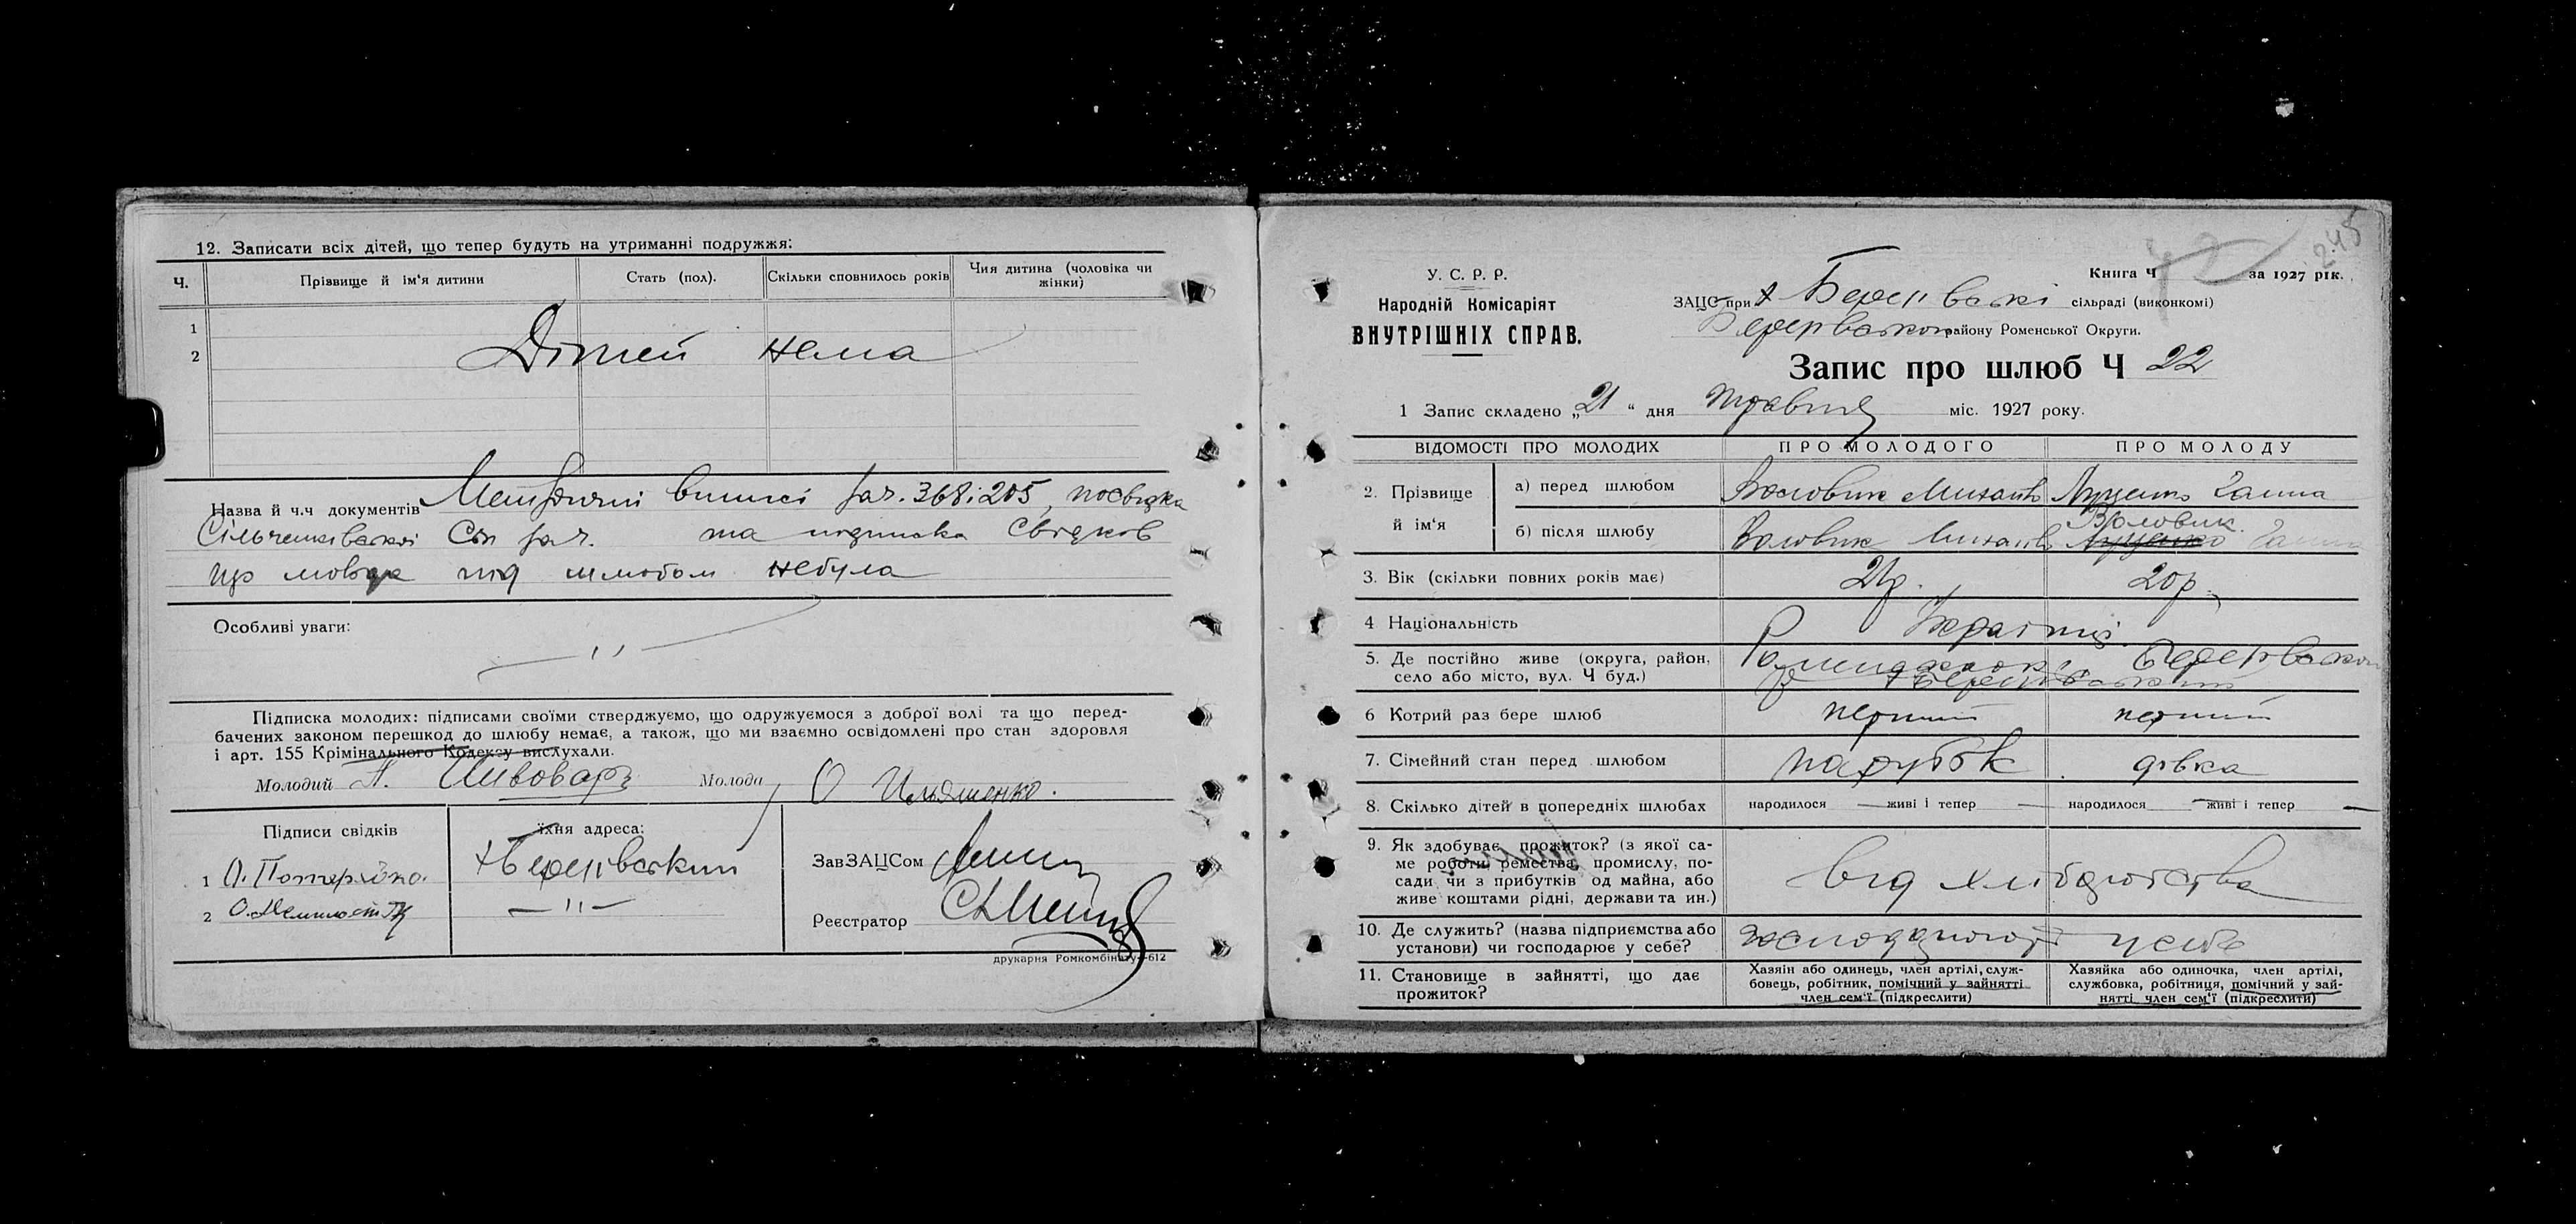 12. Записати всіх дітей, що тепер будуть на утриманні подружжя:
Ч. Прізвище й ім'я дитини Стать (пол). Скільки сповнилось років Чия дитина (чоловіка чи жінки)
1
2
Дітей нема
Назва й ч.ч документів Метричні виписі за ч. 368 і 205, посвідка
за ч. та підписка свідків
що мовця під шлюбом небула
Особливі уваги:
— ,, —
Підписка молодих: підписами своїми стверджуємо, що одружуємося з доброї волі та що перед-
бачених законом перешкод до шлюбу немає, а також, що ми взаємно освідомлені про стан здоровля
і арт. 155 Крімінального Кодексу вислухали.
Молодий П. Пивоваръ Молода О Ильяшенко.
Підписи свідків їхня адреса:
1 х Берегівський
2 — ,, —
ЗавЗАЦСом
Реєстратор
друкарня Ромкомбінату—612
245
У. С. Р. Р.
Народній Комісаріят
ВНУТРІШНІХ СПРАВ.
Книга Ч за 1927 рік.
ЗАЦС при х сільраді (виконкомі)
району Роменської Округи.
Запис про шлюб Ч 22
1 Запис складено „21" дня травня міс. 1927 року.
ВІДОМОСТІ ПРО МОЛОДИХ ПРО МОЛОДОГО ПРО МОЛОДУ
2. Прізвище й ім'я
а) перед шлюбом Воловик Михайло Луценко Ганна
б) після шлюбу Воловик Михайло Луценко Воловик Ганна
3. Вік (скільки повних років має) 21р. 20р.
4 Національність Українці
5. Де постійно живе (округа, район,
село або місто, вул. Ч буд.)
6 Котрий раз бере шлюб перший перший
7. Сімейний стан перед шлюбом парубок дівка
8. Скілько дітей в попередніх шлюбах народилося — живі і тепер — народилося — живі і тепер —
9. Як здобуває прожиток? (з якої са-
ме роботи, ремества, промислу, по-
сади чи з прибутків од майна, або
живе коштами рідні, держави та ин.)
від хліборобства
10. Де служить? (назва підприємства або
установи) чи господарює у себе?
у себе
11. Становище в зайнятті, що дає
прожиток?
Хазяін або одинець, член артілі, служ-
бовець, робітник, помічний у зайнятті
член сем'ї (підкреслити)
Хазяйка або одиночка, член артілі,
службовка, робітниця, помічний у зай-
нятті член сем'ї (підкреслити)